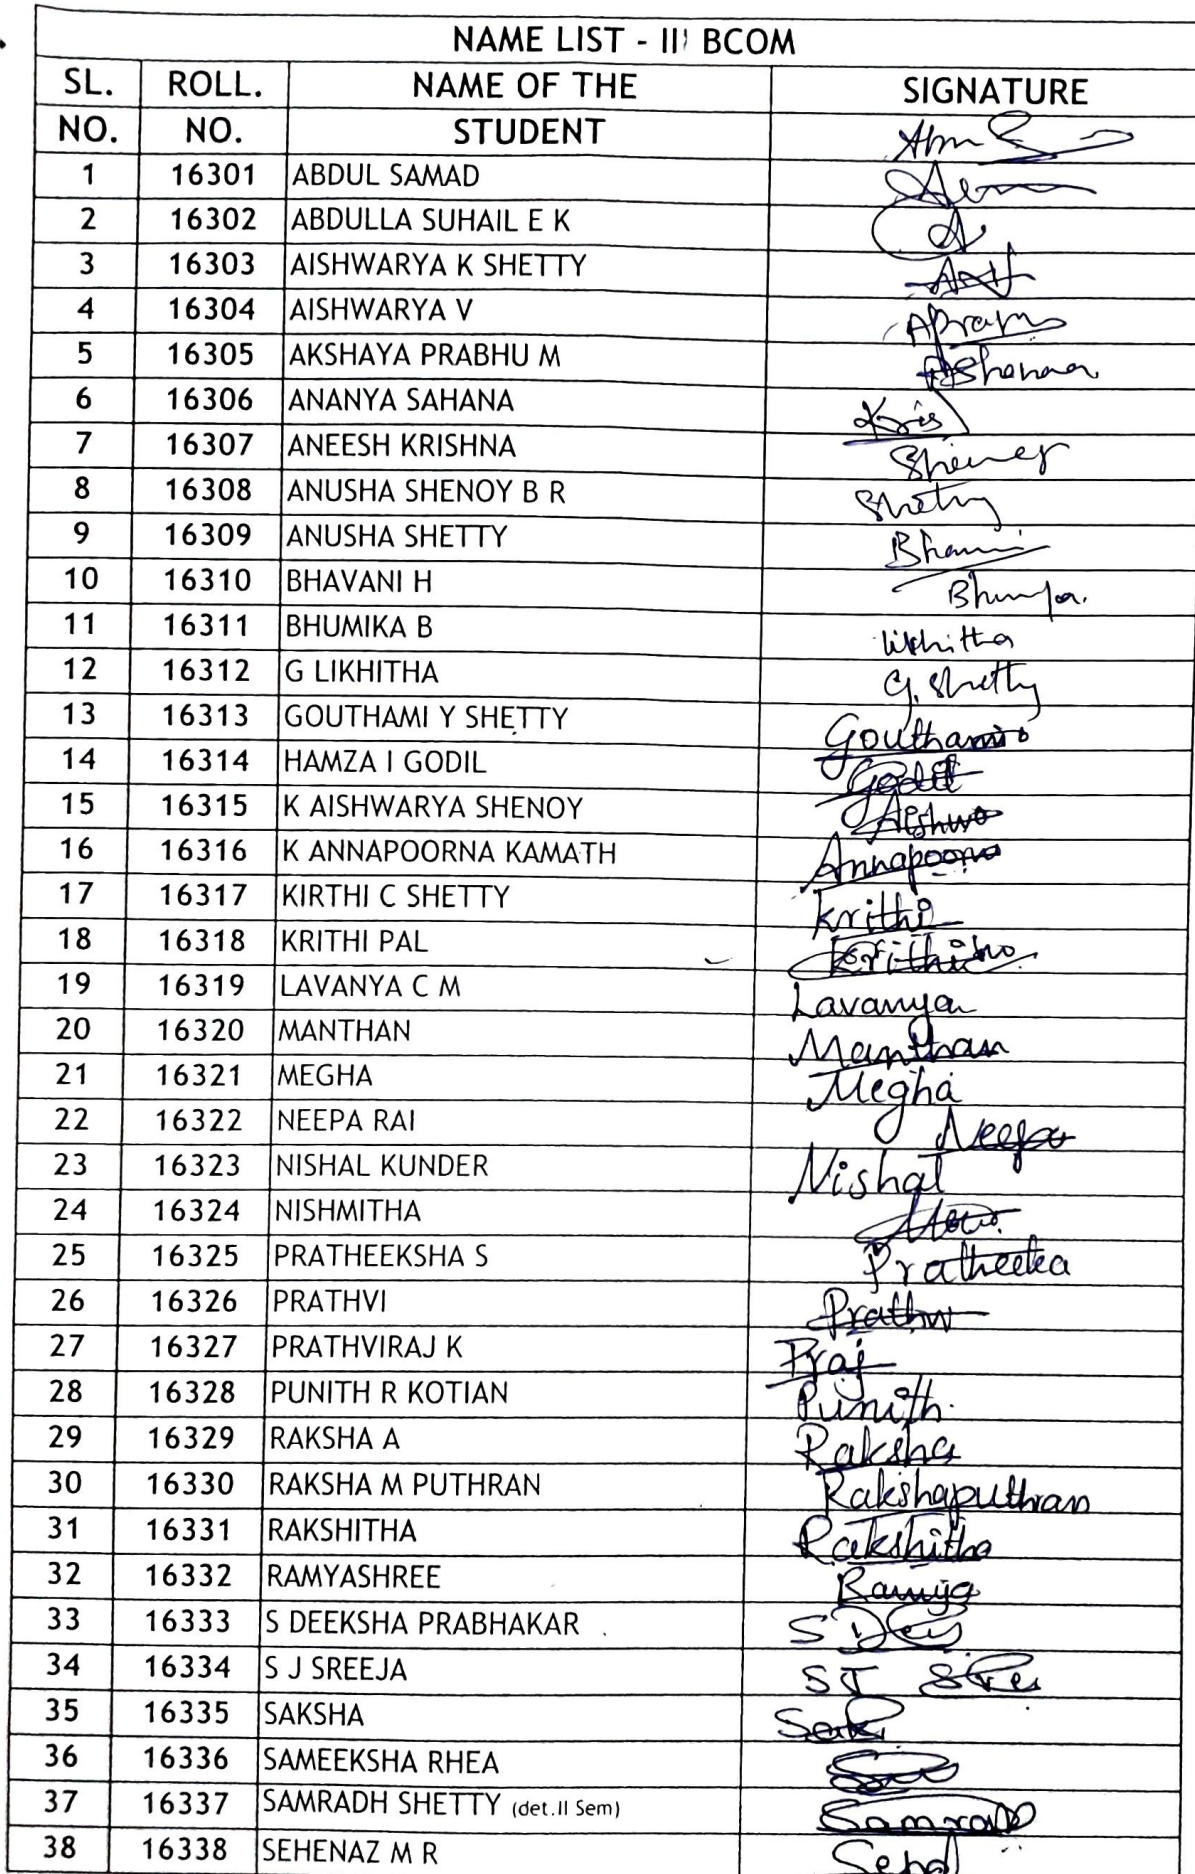 NAME LIST - III BCOM
SL. ROLL. NAME OF THE SIGNATURE
NO. NO. STUDENT
1 16301 ABDUL SAMAD
2 16302 ABDULLA SUHAIL E K
3 16303 AISHWARYA K SHETTY
4 16304 AISHWARYA V
5 16305 AKSHAYA PRABHU M
6 16306 ANANYA SAHANA
Kris
7 16307 ANEESH KRISHNA
8 16308 ANUSHA SHENOY B R
Shetty
9 16309 ANUSHA SHETTY
10 16310 BHAVANI H
11 16311 BHUMIKA B
likhitha
12 16312 G LIKHITHA
G. Shetty
13 16313 GOUTHAMI Y SHETTY
Gouthami
14 16314 HAMZA I GODIL
Godil
15 16315 K AISHWARYA SHENOY
16 16316 K ANNAPOORNA KAMATH
Annapoorna
17 16317 KIRTHI C SHETTY
Krithi
18 16318 KRITHI PAL
19 16319 LAVANYA C M
Lavanya
20 16320 MANTHAN
Manthan
21 16321 MEGHA
Megha
22 16322 NEEPA RAI
Neepa
23 16323 NISHAL KUNDER
Nishal
24 16324 NISHMITHA
25 16325 PRATHEEKSHA S
26 16326 PRATHVI
27 16327 PRATHVIRAJ K
Praj
28 16328 PUNITH R KOTIAN
Punith
29 16329 RAKSHA A
Raksha
30 16330 RAKSHA M PUTHRAN
Rakshaputhran
31 16331 RAKSHITHA
Rakshitha
32 16332 RAMYASHREE
Ramya
33 16333 S DEEKSHA PRABHAKAR
34 16334 S J SREEJA
35 16335 SAKSHA
36 16336 SAMEEKSHA RHEA
37 16337 SAMRADH SHETTY (det.II Sem)
38 16338 SEHENAZ M R